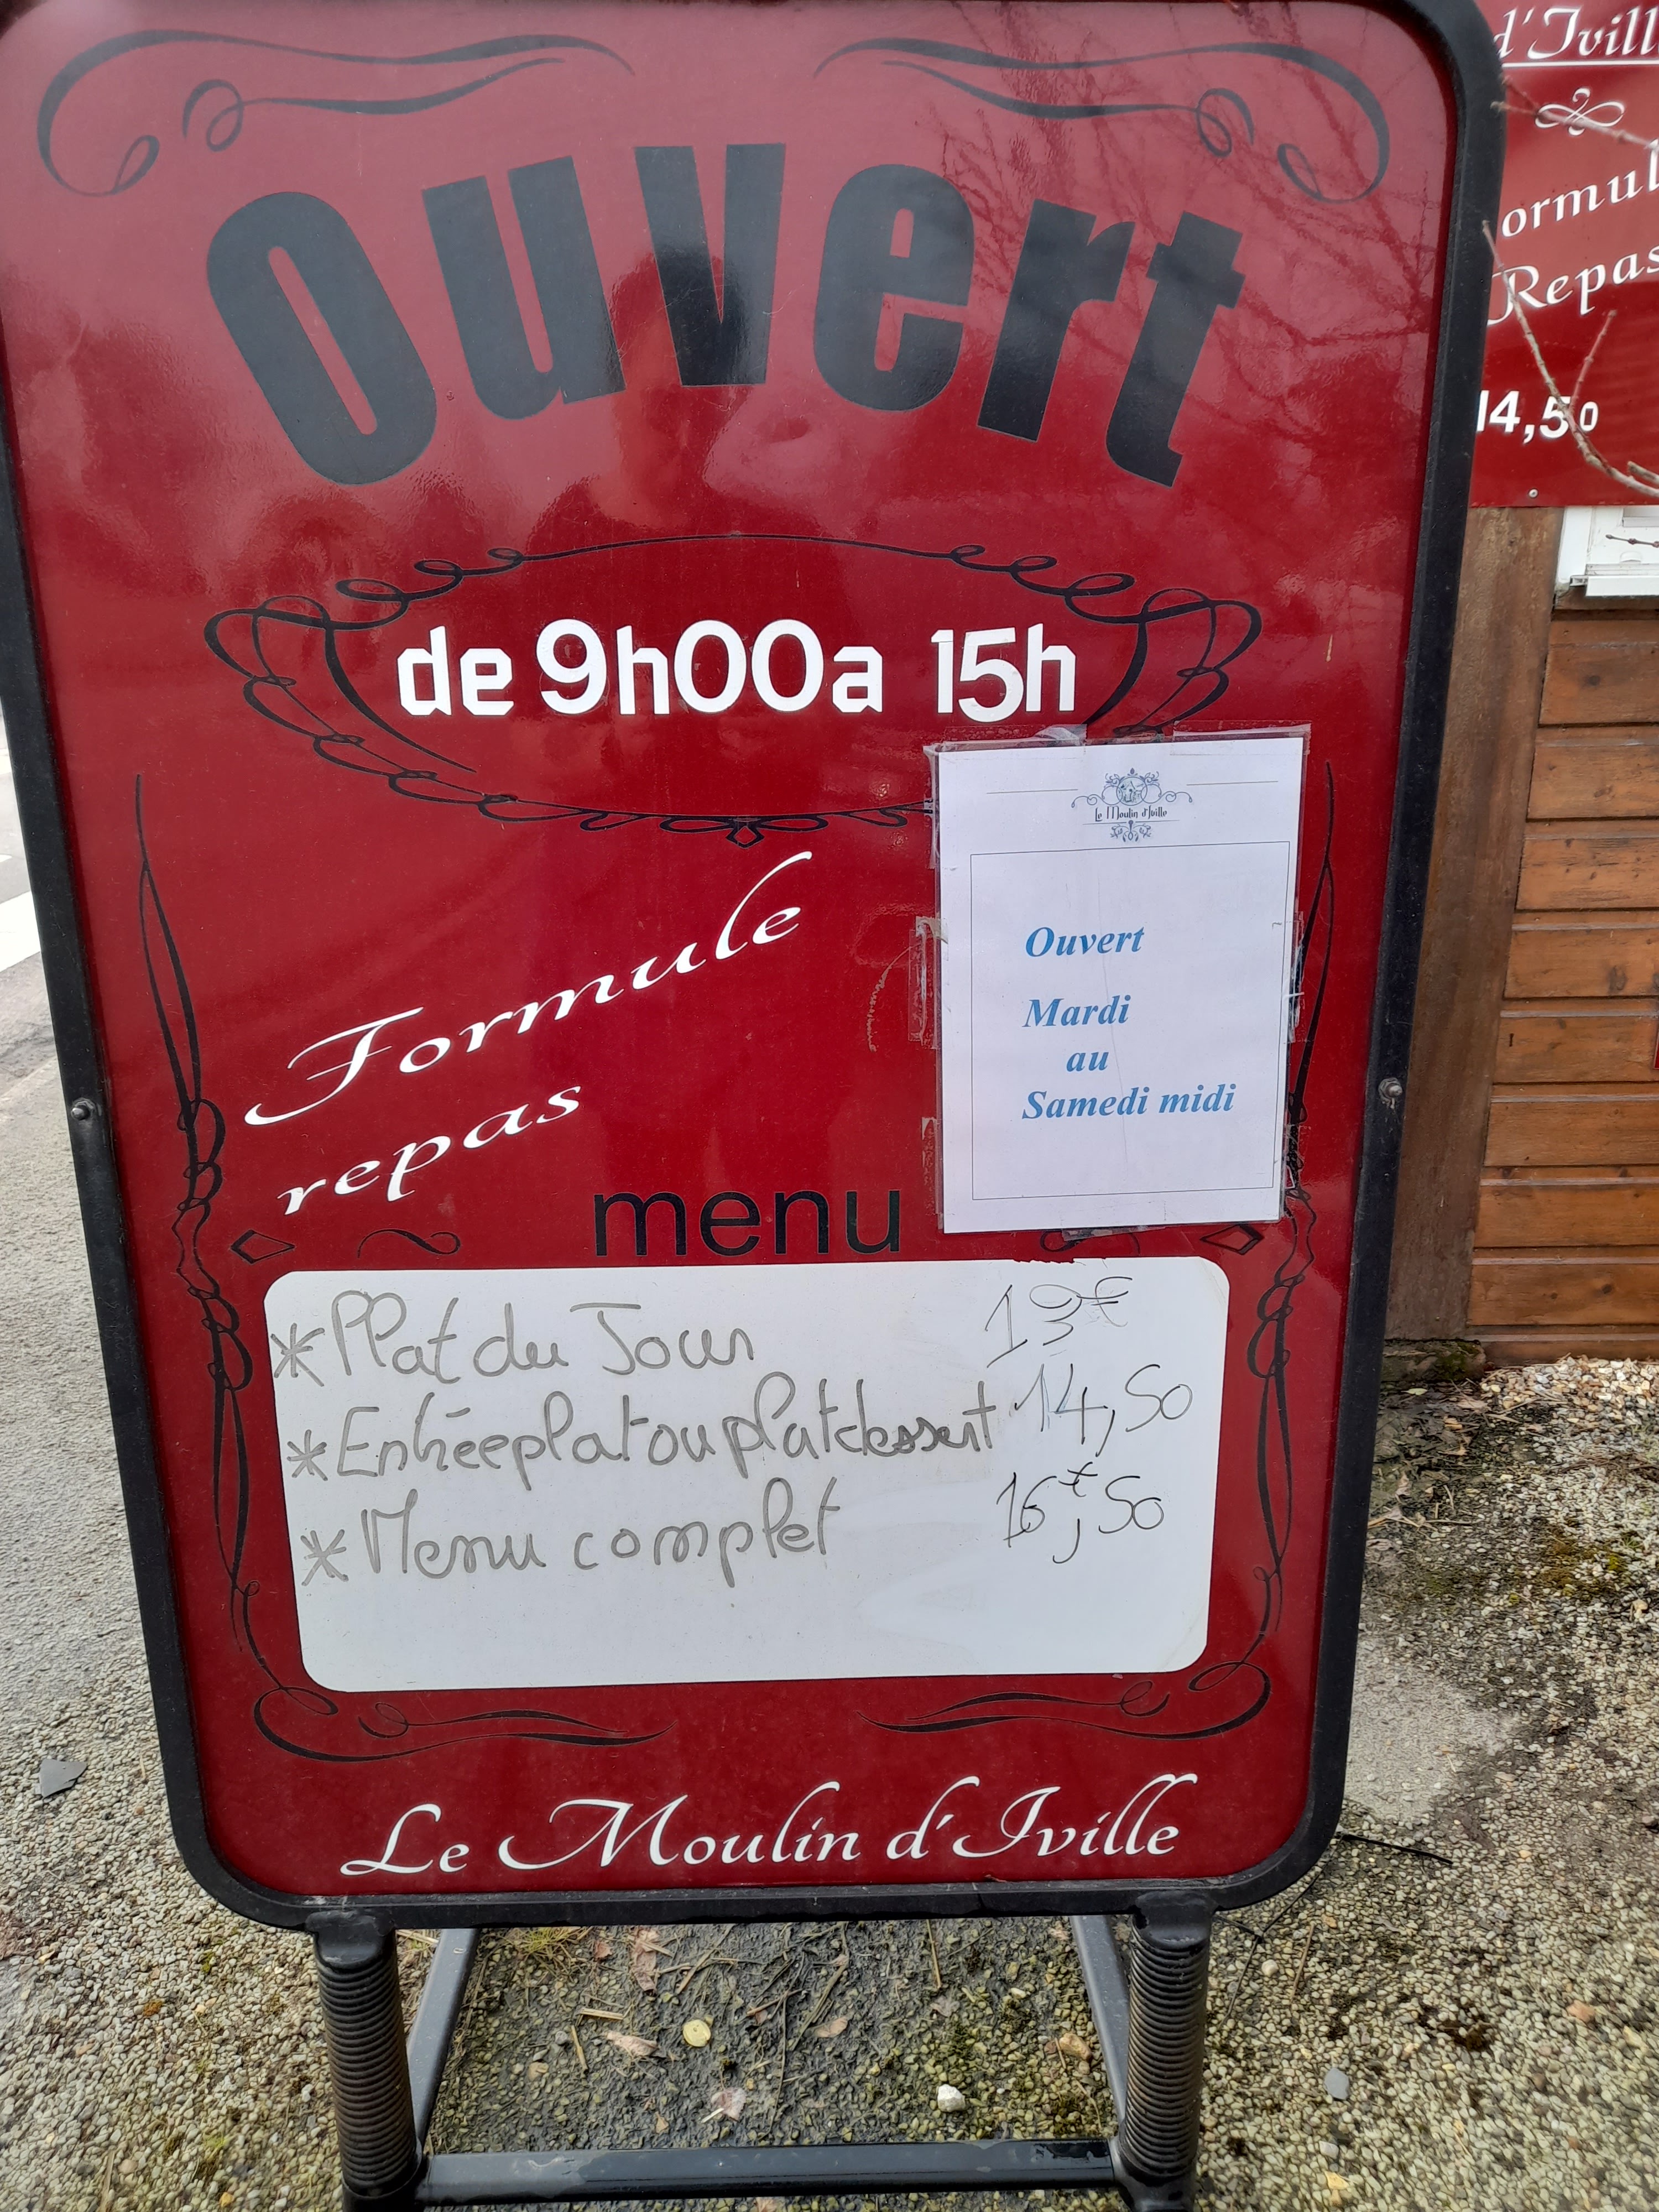 Ouvert
de 9h00a 15h
Le Moulin d'Iville
Ouvert
Mardi
au
Samedi midi
Formule
repas
menu
*Plat du Jour 13€
*Entréeplat ou platdessert 14,50
*Menu complet 16€,50
Le Moulin d'Iville
d'Ivill
ormul
Repas
14,50